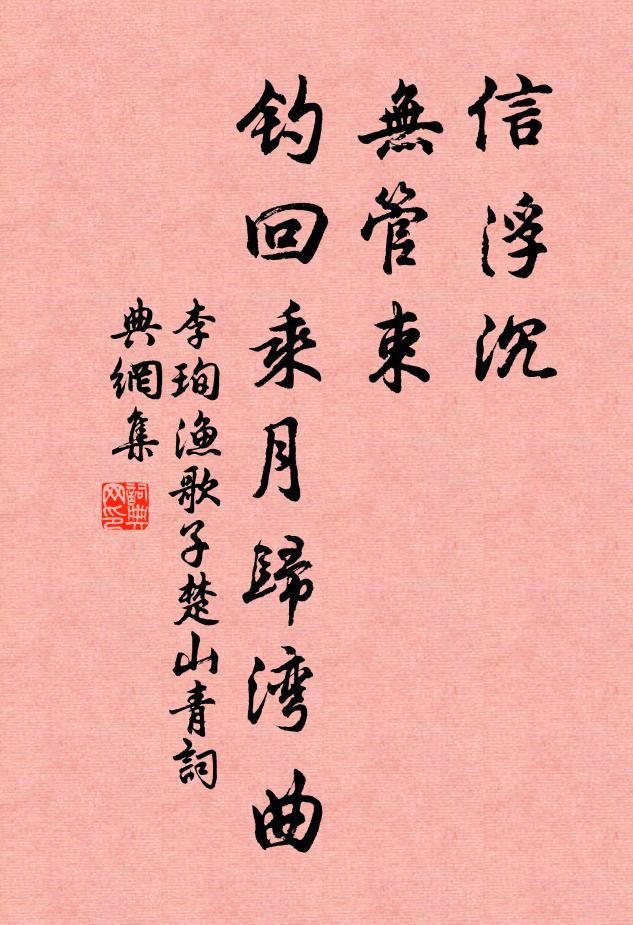 信浮沉
無管束
钓回乘月歸湾曲
李珣渔歌子楚山青詞
典網集
詞典网印